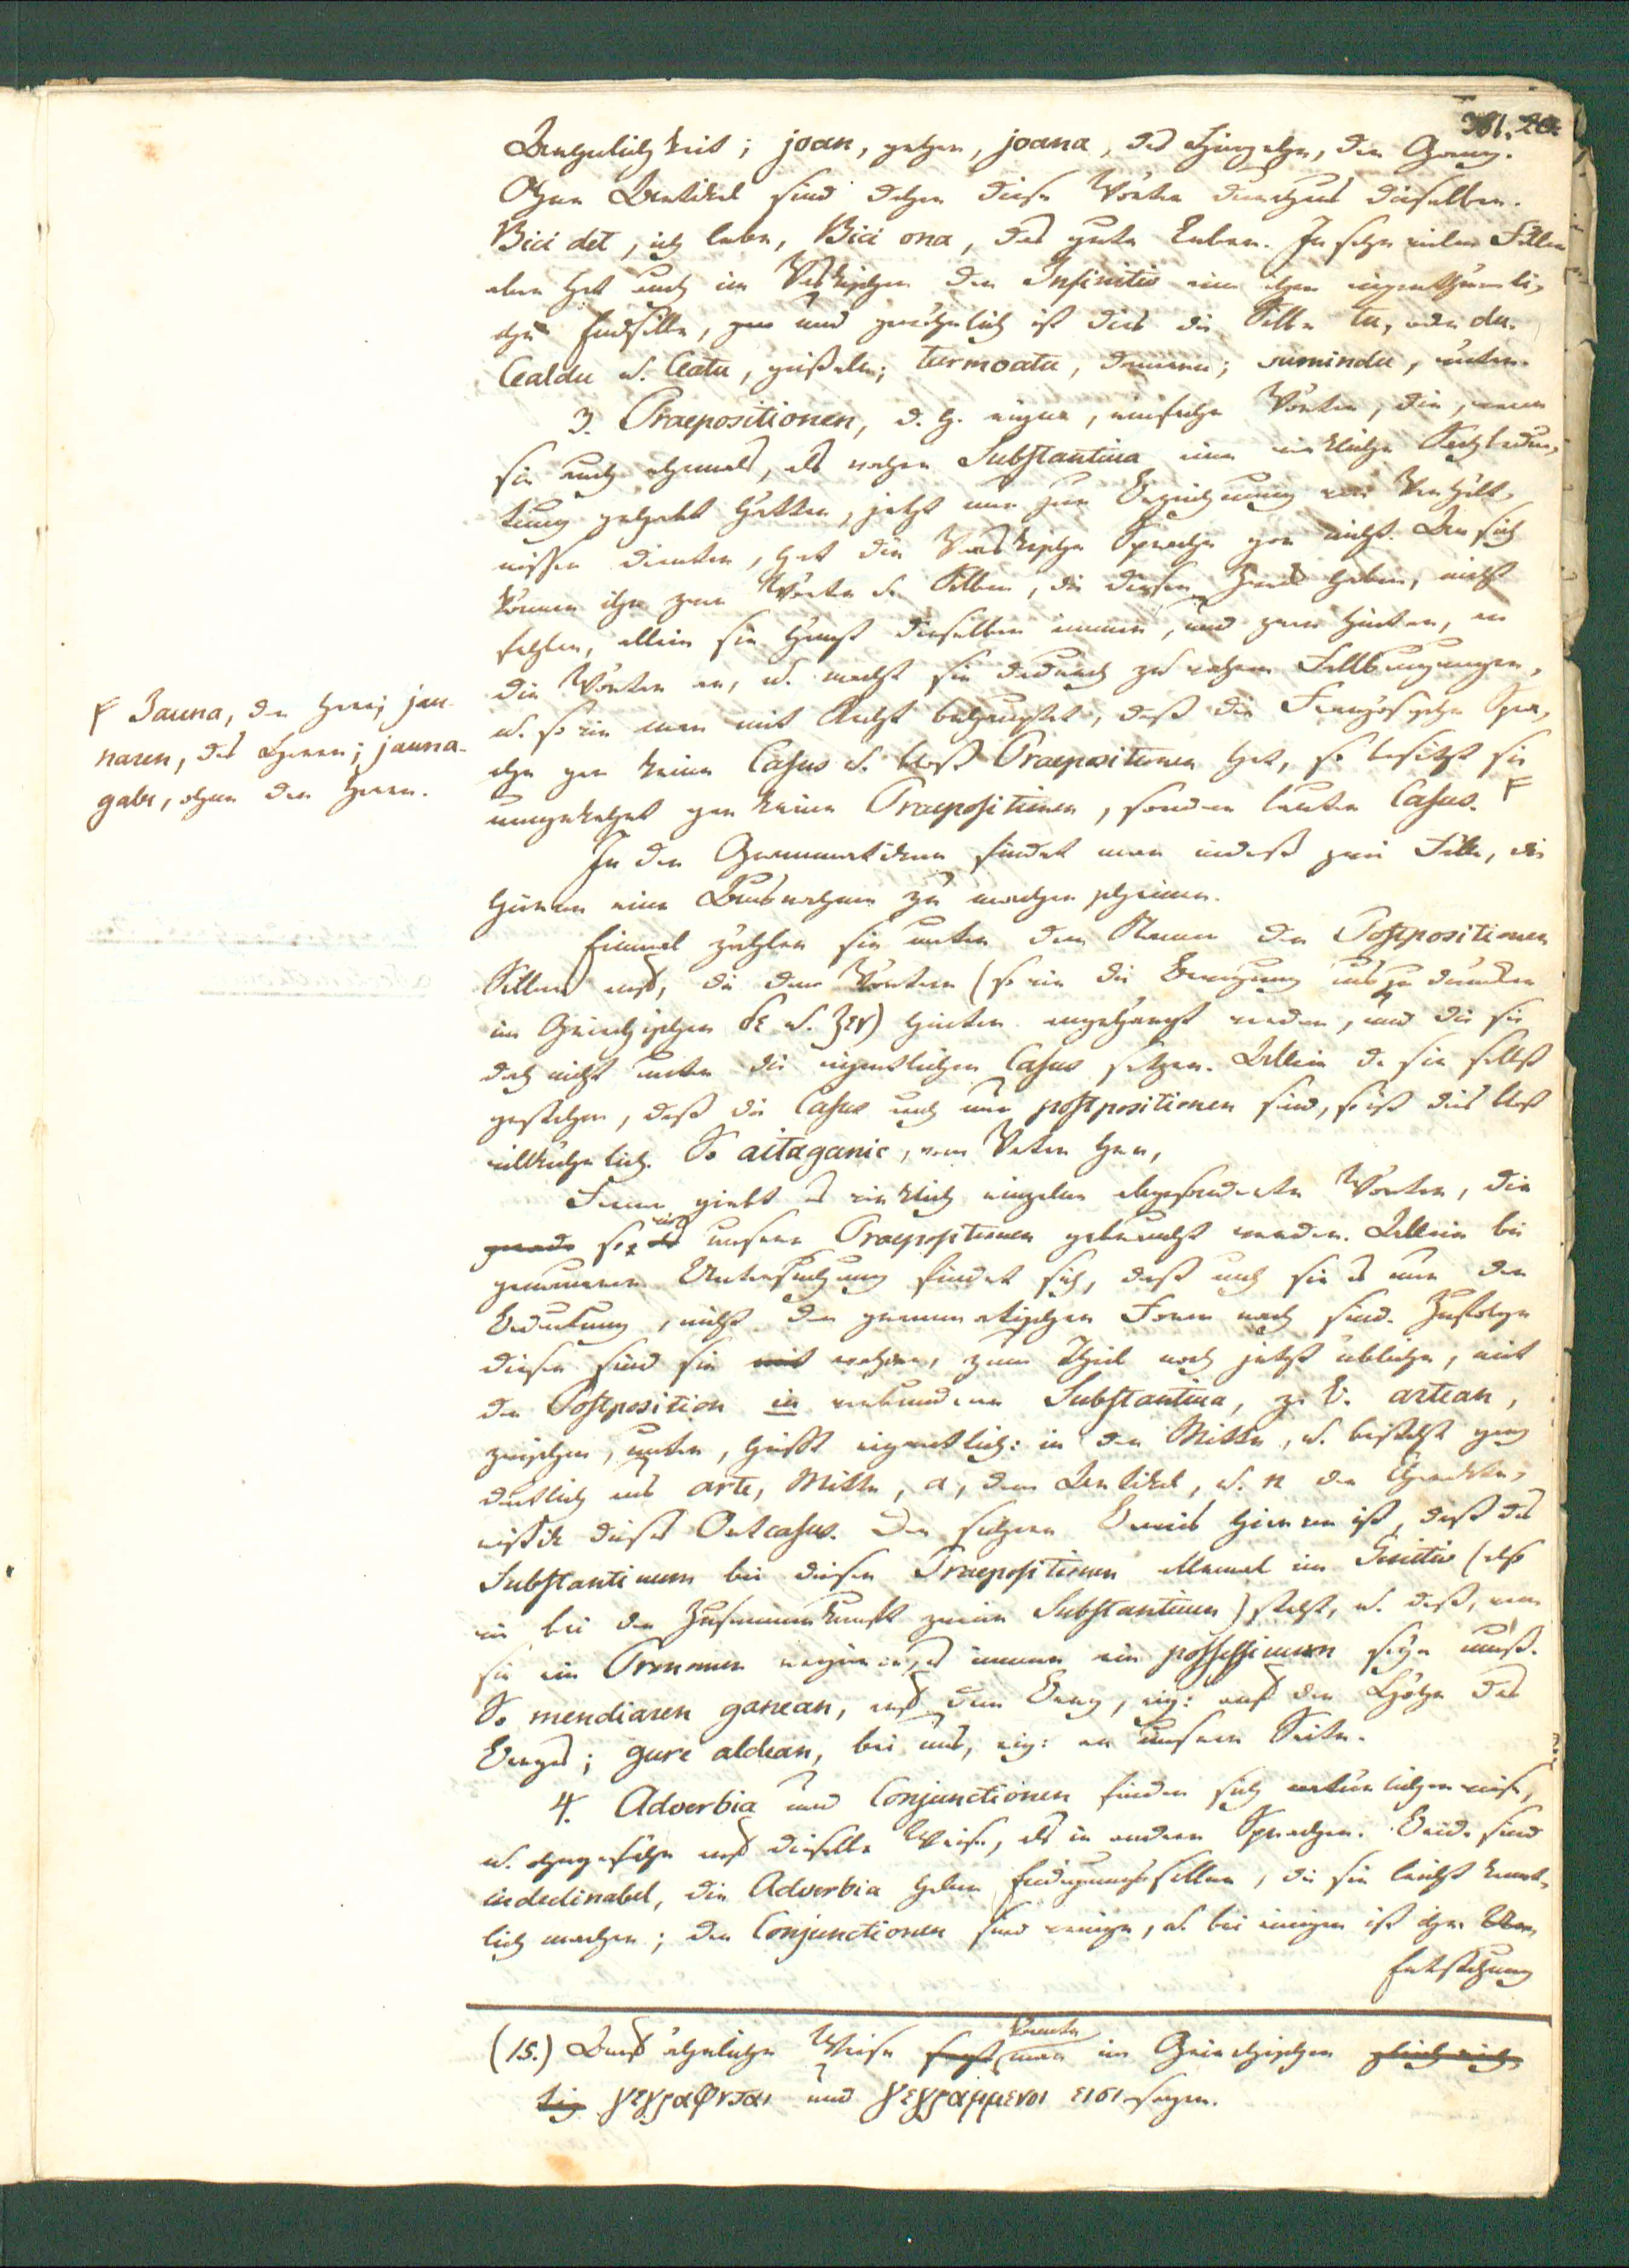 381. 20.
Beweglichkeit; joan, gehen, joana, das Hingehen, der Gang.
Ohne Artikel sind daher diese Wörter durchaus dieselben.
Bici det, ich lebe, Bici ona, das gute Leben. In sehr vielen Fällen
aber hat auch im Vaskischen der Infinitiv eine ihm eigenthümli-
che Endsilbe, und gewöhnlich ist dies die Silbe tu, oder du.
Cealdu u. Ceatu, turmoatu, donnern; sumindu,
3. Praepositionen, d. h. eigne, einfache Wörter, die, wenn
sie auch ehemals, als wahre Substantiva eine wirkliche Sachbedeu-
tung gehabt hätten, jetzt nur zur Bezeichnung von Verhält-
nissen dienten, hat die Vaskische Sprache gar nicht. An sich
können ihr zwar Wörter u. Silben, die diesen Zweck haben, nicht
fehlen, allein sie hängt dieselben immer, und zwar hinten, an
die Wörter an, u. macht sie dadurch zu wahren Fallbeugungen,
u. so wie man mit Recht behauptet, daß die Französische Spra-
che gar keine Casus u. bloß Praepositionen hat, so besitzt sie
umgekehrt gar keine Praepositionen, sondern lauter Casus. F
F Jauna, der Herr; jau-
naren, des Herrn; jauna-
gabe, ohne den Herrn.
In den Grammatiken findet man indeß zwei Fälle, die
hievon eine Ausnahme zu machen scheinen.
Einmal zählen sie unter dem Namen der Postpositionen
Silben auf, die den Wörtern (so wie die Bewegung anzudeuten
im Griechischen δε u. ζεν) hinten angehängt werden, und die sie
doch nicht unter die eigentlichen Casus setzen. Allein da sie selbst
gestehen, daß die Casus auch nur postpositionen sind, so ist dies bloß
willkührlich. So aitaganic, vom Vater her,
Ferner giebt es wirklich einzelne abgesonderte Wörter, die
gerade so wie als unsere Praepositionen gebraucht werden. Allein bei
genauerer Untersuchung findet sich, daß auch sie es nur der
Bedeutung, nicht der grammatischen Form nach sind. Zufolge
dieser sind sie mit wahre, zum Theil noch jetzt übliche, mit
der Postposition in verbundene Substantiva, z. B. artean,
zwischen, unter, heißt eigentlich: in der Mitte, u. besteht ganz
deutlich aus arte, Mitte, a, dem Artikel, u. n der Charakte-
ristik dieses Ortcasus. Der sichere Beweis hiervon ist, daß das
Substantivum bei diesen Praepositionen allemal im Genitiv (also
wie bei der Zusammenkunft zweier Substantiven) steht, u. daß, wenn
sie ein Pronomen regieren, es immer ein possessivum seyn muß.
So mendiaren ganean, auf dem Berg, eig: auf der Höhe des
Berges; gure aldean, bei uns, eig: an unserer Seite.
4. Adverbia und Conjunctionen finden sich natürlicherweise,
u. ohngefähr auf dieselbe Weise, als in andern Sprachen. Beide sind
indeclinabel, die Adverbia haben Endigungssilben, die sie leicht kennt-
lich machen; der Conjunctionen sind wenige, u. bei einigen ist ihre
Entstehung
(15.) Auf ähnliche Weise sagt könnte man im Griechischen gleich rich-
tig γεγραφνται und γεγραμμενοι εισι sagen.